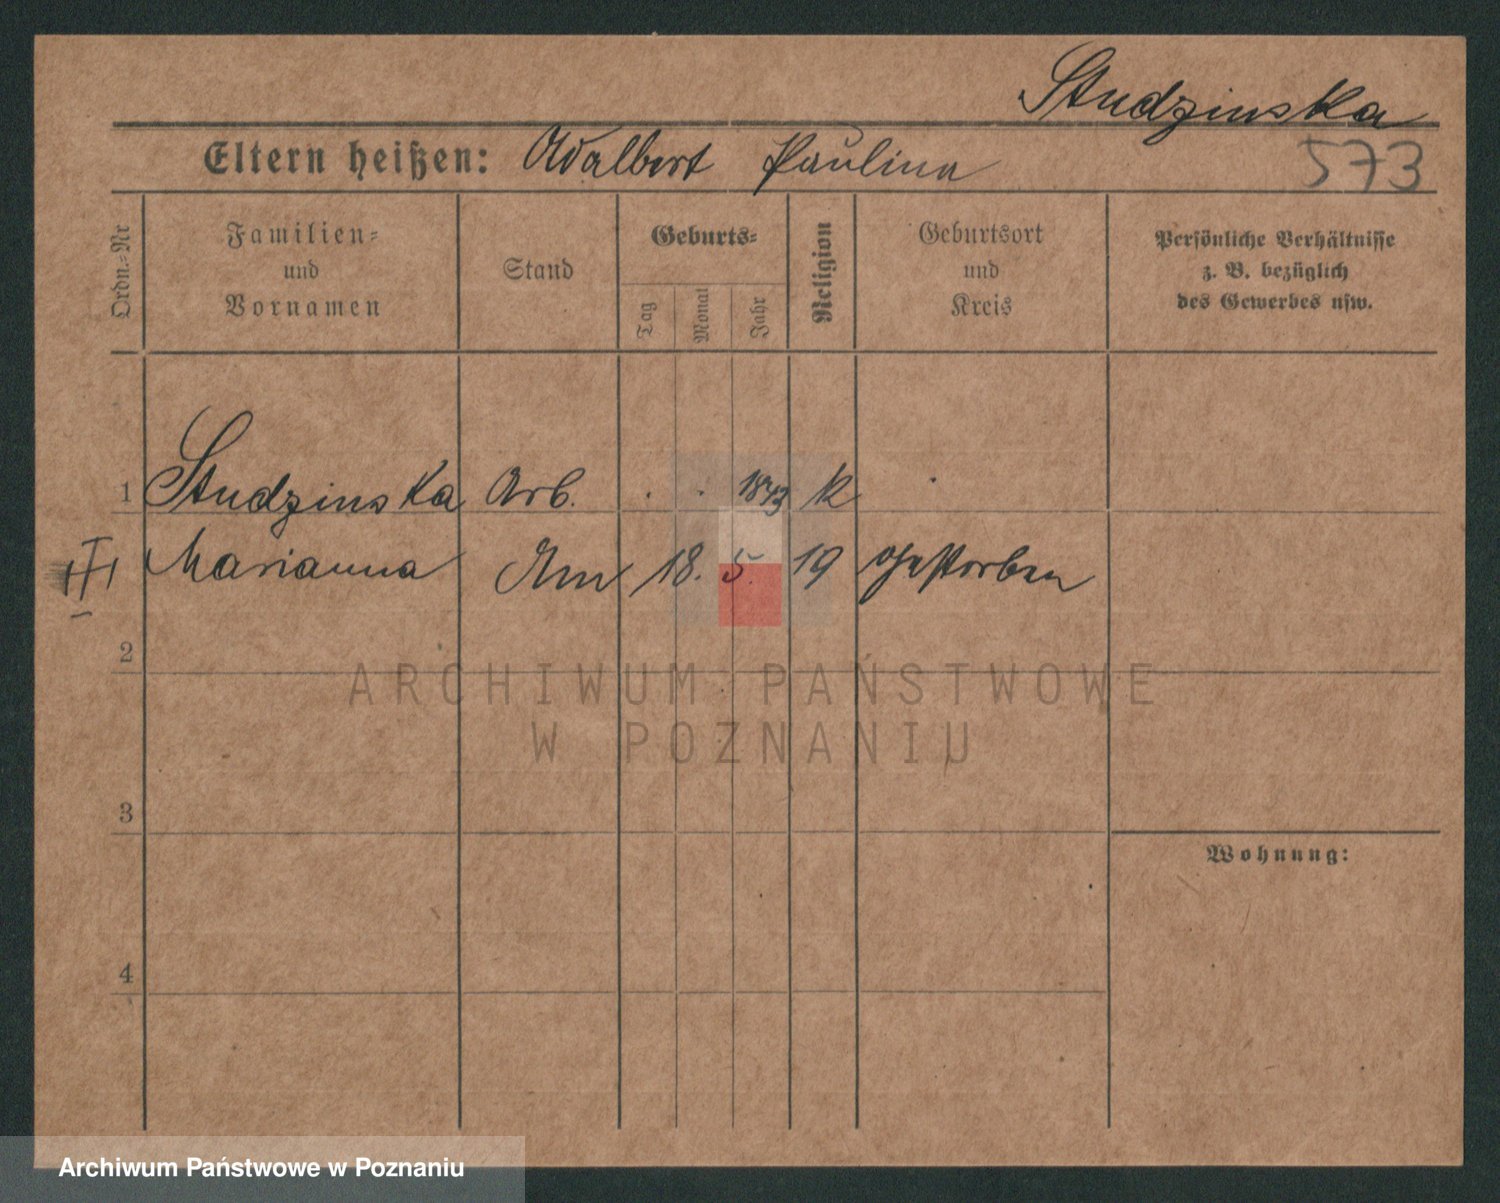 Studzinska
Eltern heißen: Adalbert Paulina
573
Ordn.-Nr
Familien-
und
Vornamen
Stand
Geburts-
Tag
Monat
Jahr
Religion
Geburtsort
und
Kreis
Persönliche Verhältnisse
z. B. bezüglich
des Gewerbes usw.
1 Studzinska Arb. . . 1873 k .
Marianna Am 18. 5. 19 gestorben
2
ARCHIWUM PAŃSTWOWE
W POZNANIU
3
Wohnung:
4
Archiwum Państwowe w Poznaniu